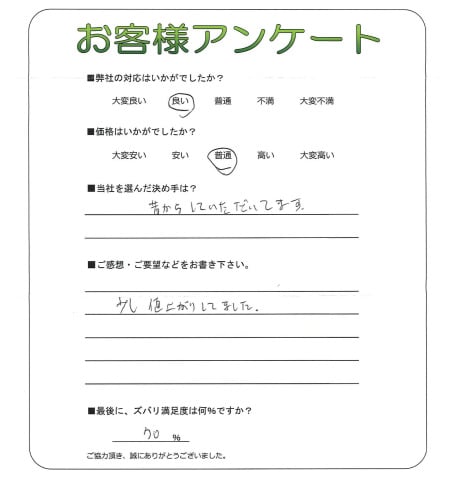 お客様アンケート
■弊社の対応はいかがでしたか？
大変良い 良い 普通 不満 大変不満
■価格はいかがでしたか？
大変安い 安い 普通 高い 大変高い
■当社を選んだ決め手は？
昔からしていただいてます。
■ご感想・ご要望などをお書き下さい。
少し値上がりしてました。
■最後に、ズバリ満足度は何%ですか？
90 %
ご協力頂き、誠にありがとうございました。